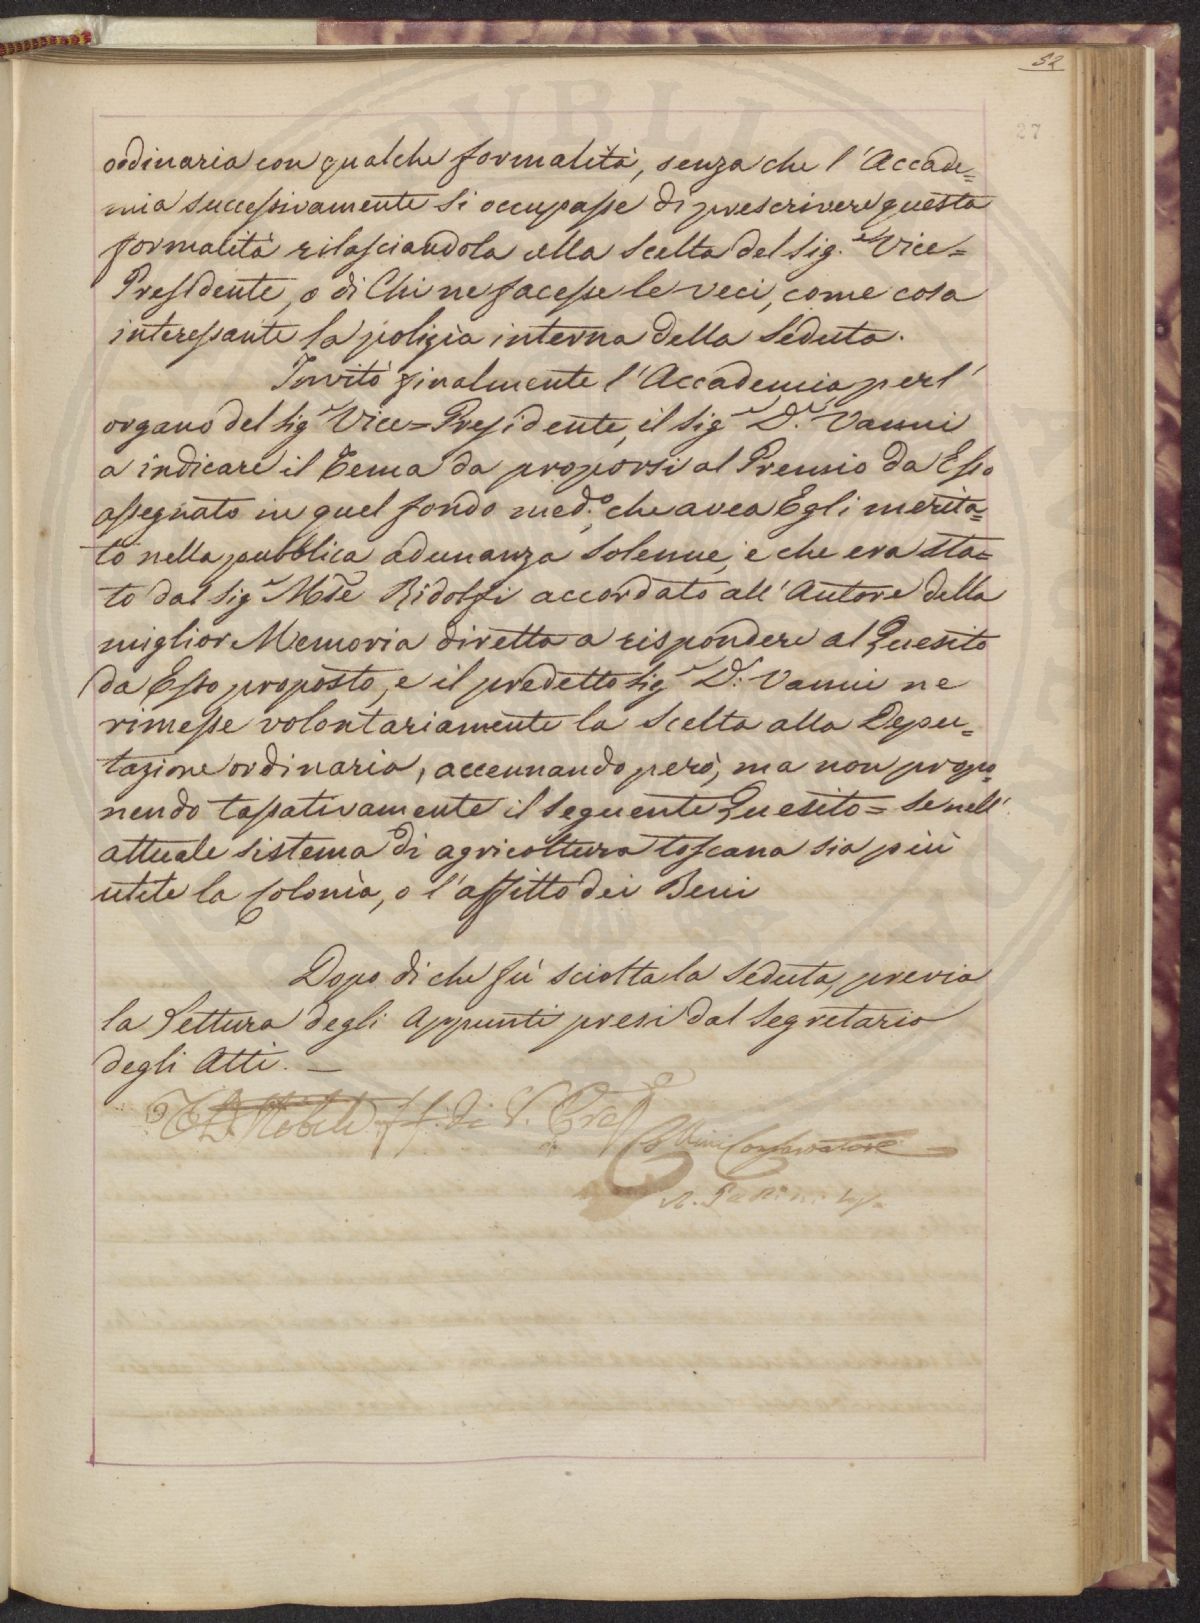 52
27
ordinaria con qualche formalità, senza che l'Accade=
mia successivamente si occupasse di prescrivere questa
formalità rilasciandola alla scelta del Sig.r Vice=
Presidente, o di Chi ne facesse le veci, come cosa
interessante la polizia interna della Seduta.
Invitò finalmente l'Accademia, per l'
organo del Sig.r Vice=Presidente, il Sig.r D.r Vanni
a indicare il Tema da proporsi al Premio da Esso
assegnato in quel fondo med.o, che avea Egli merita=
to nella pubblica adunanza solenne, e che era sta=
to dal Sig.r Mse Ridolfi accordato all'Autore della
miglior Memoria diretta a rispondere al Quesito
da Esso proposto, e il predetto Sig.r D.r Vanni ne
rimesse volontariamente la scelta alla Depu=
tazione ordinaria, accennando però, ma non propo=
nendo tassativamente il seguente Quesito = Se nell'
attuale sistema di agricoltura toscana sia più
utile la Colonìa, o l'affitto dei Beni
Dopo di che fù sciolta la Seduta, previa
la Lettura degli Appunti presi dal Segretario
degli Atti. —
Nobili ff. di V. Pres.
Conservatore